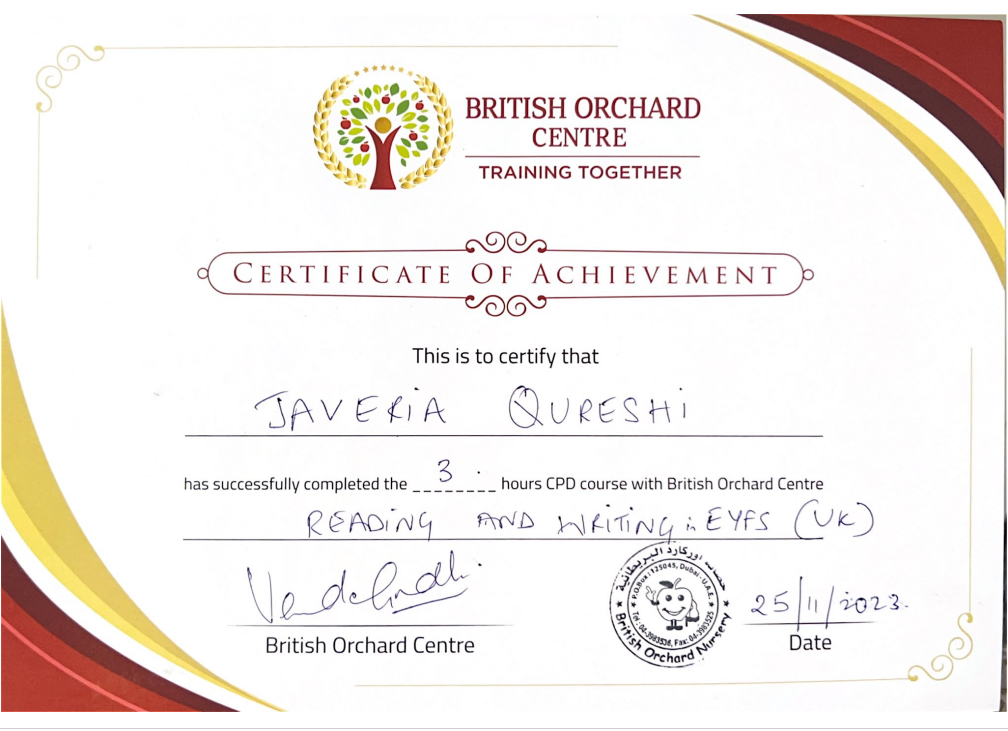 BRITISH ORCHARD
CENTRE
TRAINING TOGETHER
CERTIFICATE OF ACHIEVEMENT
This is to certify that
JAVERIA QURESHI
has successfully completed the 3 hours CPD course with British Orchard Centre
READING AND WRITING in EYFS (UK)
British Orchard Centre
حضانة اوركارد البريطانية
P.O.Box: 125045, Dubai - U.A.E.
Tel: 04-3983536, Fax: 04-3983525
British Orchard Nursery
25/11/2023.
Date